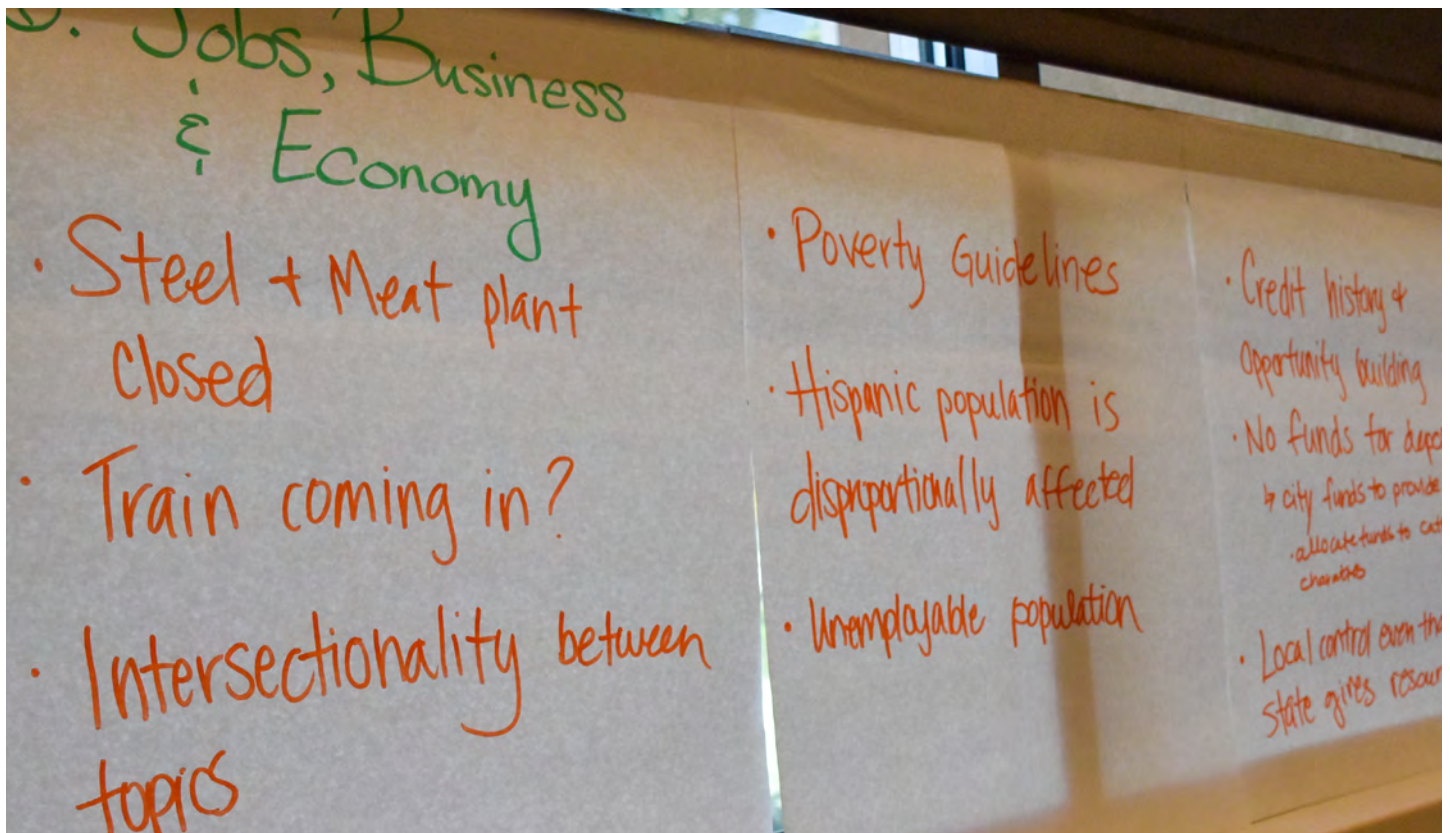 Jobs, Business
& Economy
• Steel + Meat plant
closed
• Train coming in?
• Intersectionality between
topics
• Poverty Guidelines
• Hispanic population is
disproportionally affected
• Unemployable population
• Credit history &
Opportunity building
• No funds for
↳ city funds to provide
• allocate funds to
• Local control even
state gives